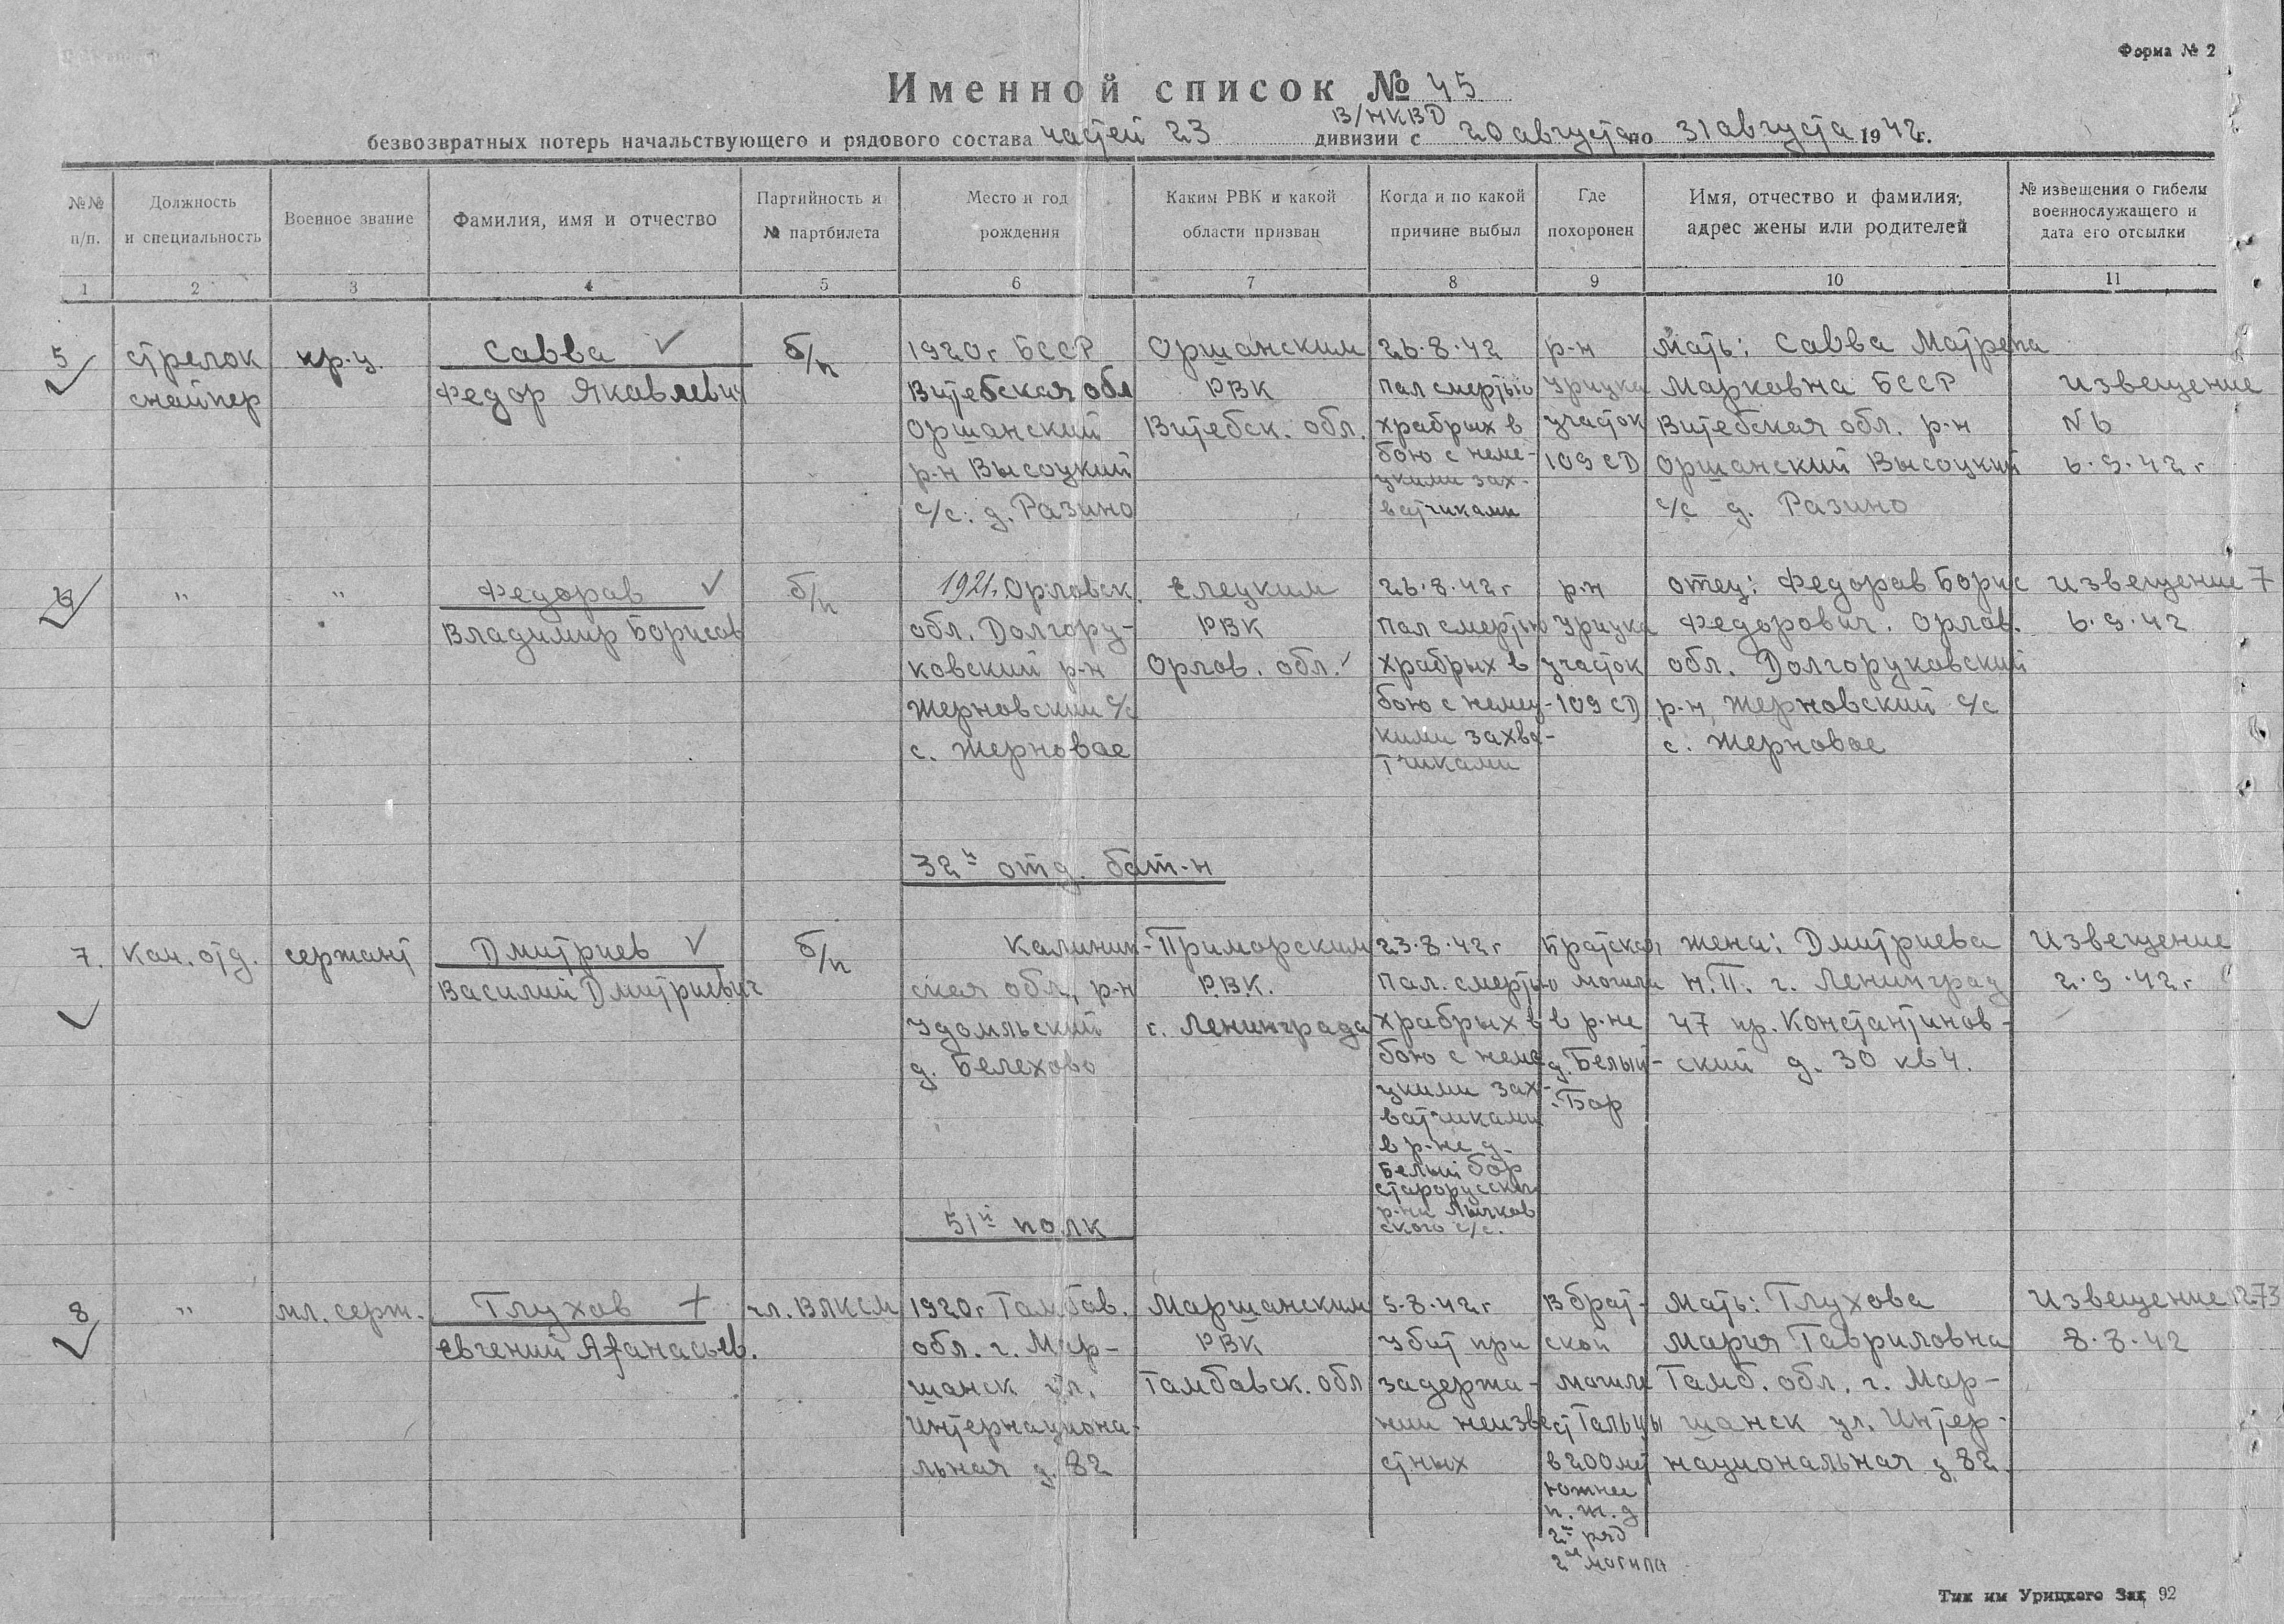 Форма № 2
Именной список № 45
безвозвратных потерь начальствующего и рядового состава частей 23 В/НКВД дивизии с 20 августа по 31 августа 1942 г.
№№ п/п.
Должность и специальность
Военное звание
Фамилия, имя и отчество
Партийность и № партбилета
Место и год рождения
Каким РВК и какой области призван
Когда и по какой причине выбыл
Где похоронен
Имя, отчество и фамилия, адрес жены или родителей
№ извещения о гибели военнослужащего и дата его отсылки
1 2 3 4 5 6 7 8 9 10 11
5
стрелок
снайпер
кр-ц.
Савва
Федор Яковлевич
б/п
1920г БССР
Витебская обл
Оршанский
р-н Высоцкий
с/с. д. Разино
Оршанским
РВК
Витебск. обл.
26.8.42
пал смертью
храбрых в
бою с неме-
цкими зах-
ватчиками
р-н
Урицка
участок
109 СД
мать: Савва Матрена
Марковна БССР
Витебская обл. р-н
Оршанский Высоцкий
с/с д. Разино
извещение
N 6
6.9.42 г
6
"
"
Федоров
Владимир Борисов
б/п
1921. Орловск.
обл. Долгору-
ковский р-н
Жерновский с/с
с. Жерновое
Елецким
РВК
Орлов. обл.
26.8.42 г
пал смертью
храбрых в
бою с немец-
кими захва-
тчиками
р-н
Урицка
участок
109 СД
отец: Федоров Борис
Федорович. Орлов.
обл. Долгоруковский
р-н, Жерновский с/с
с. Жерновое
извещение 7
6.9.42
32й отд. бат-н
7.
Ком. отд.
сержант
Дмитриев
Василий Дмитриевич
б/п
Калинин-
ская обл, р-н
Удомльский
д. Белехово
Приморским
РВК.
г. Ленинграда
23.8.42 г
Пал. смертью
храбрых в
бою с неме-
цкими зах-
ватчиками
в р-не д.
Белый бор
старорусского
р-на Лычков
ского с/с.
Братская
могила
в р-не
д. Белый-
-Бор
жена: Дмитриева
Н.П. г. Ленинград
47 пр. Константинов-
ский д. 30 кв 4.
Извещение
2.9.42 г
51й полк
8
"
мл. серж.
Глухов
Евгений Афанасьев.
чл. ВЛКСМ
1920г Тамбов.
обл. г. Мор-
шанск ул.
Интернациона-
льная д. 82
Моршанским
РВК
Тамбовск. обл
5.8.42 г
Убит при
задержа-
нии неизвест
стных
В брат-
ской
могиле
Тальцы
в 200 мет
южнее
п. ж. д
2й ряд
2ая могила
Мать: Глухова
Мария Гавриловна
Тамб. обл. г. Мор-
шанск ул. Интер-
национальная д 82.
Извещение 1273
8.8.42
Тип им Урицкого Зак 92